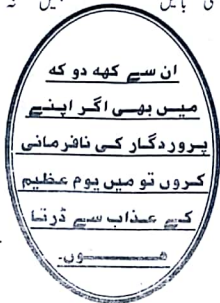 ان سے کہہ دو کہ
میں بھی اگر اپنے
پروردگار کی نافرمانی
کروں تو میں یوم عظیم
کے عذاب سے ڈرتا
ہوں۔